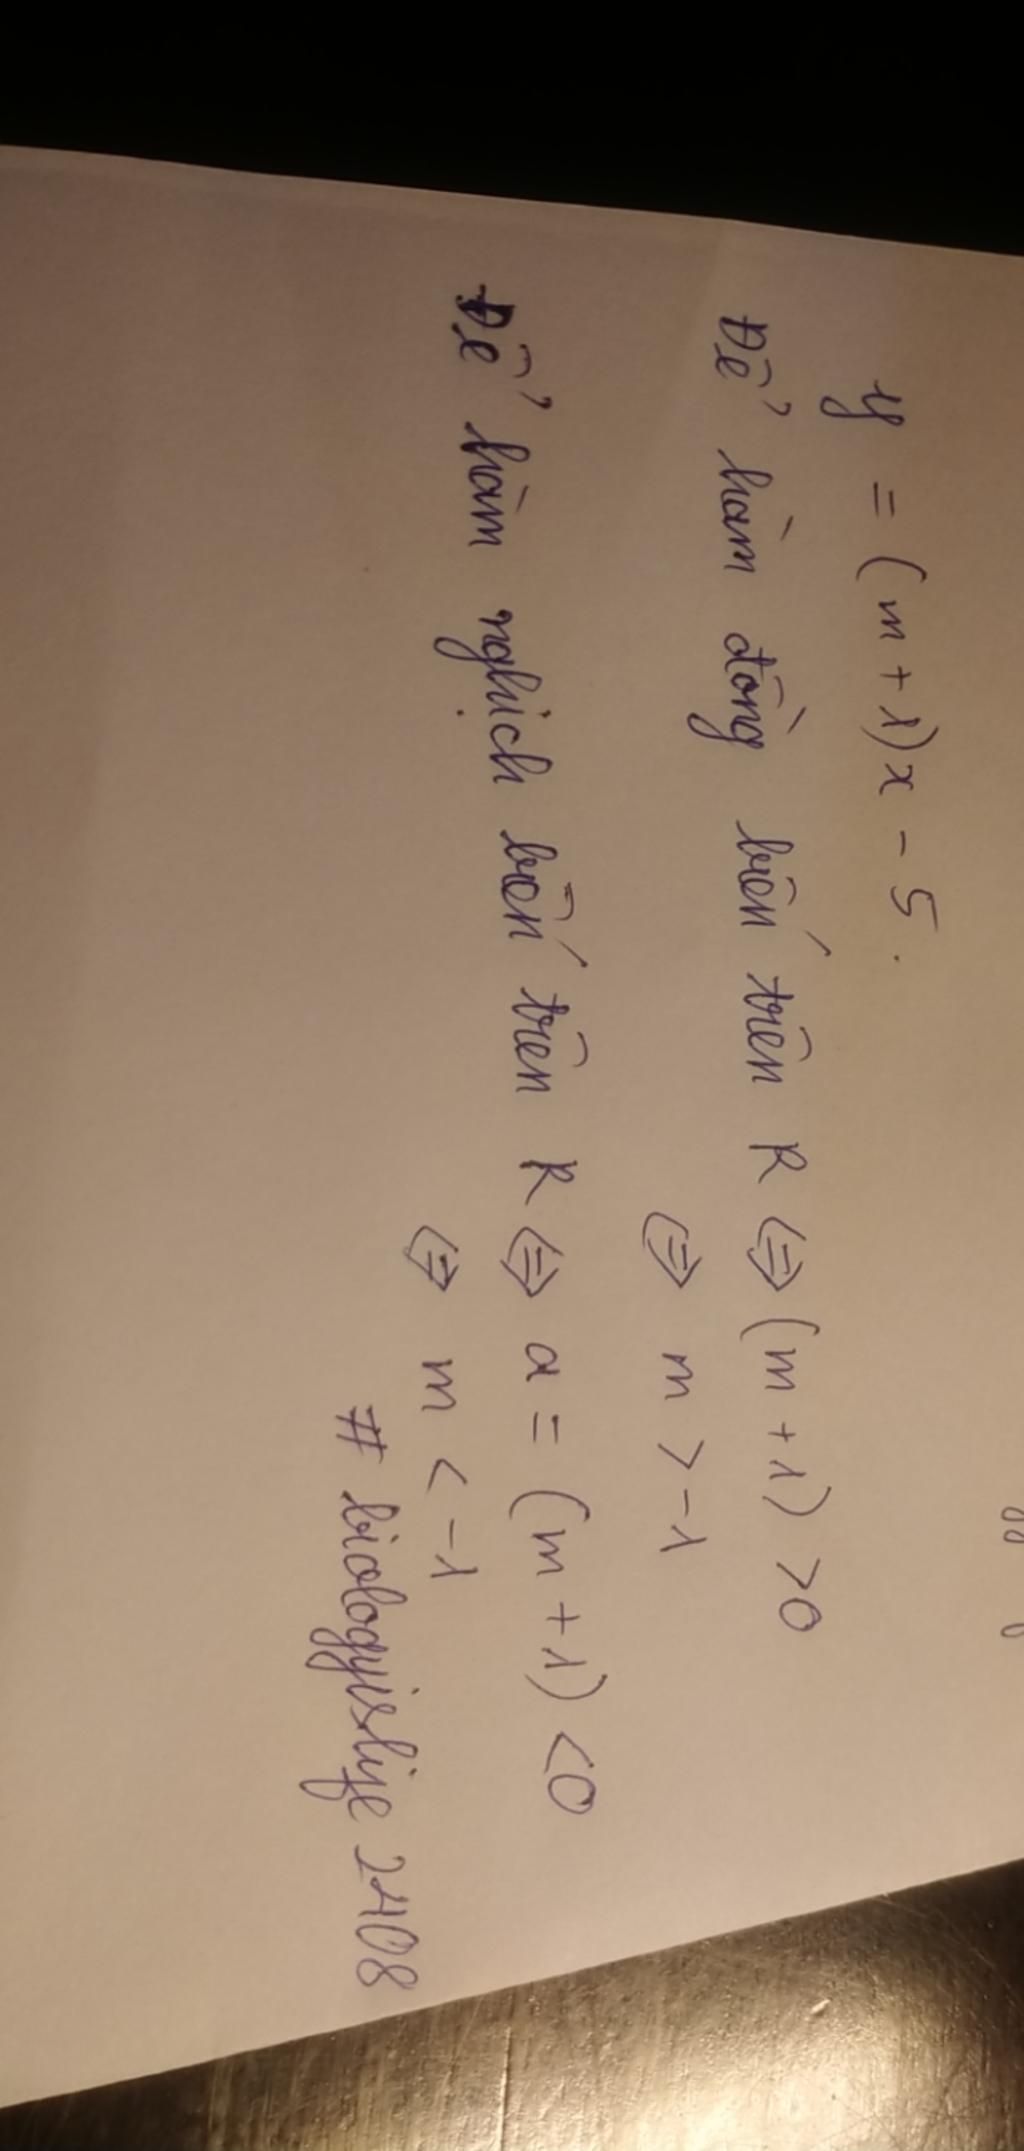 y = (m + 1)x - 5.
Để hàm đồng biến trên R ⇔ (m + 1) > 0
⇔ m > -1
Để hàm nghịch biến trên R ⇔ a = (m + 1) < 0
⇔ m < -1
# biologyislife 2408